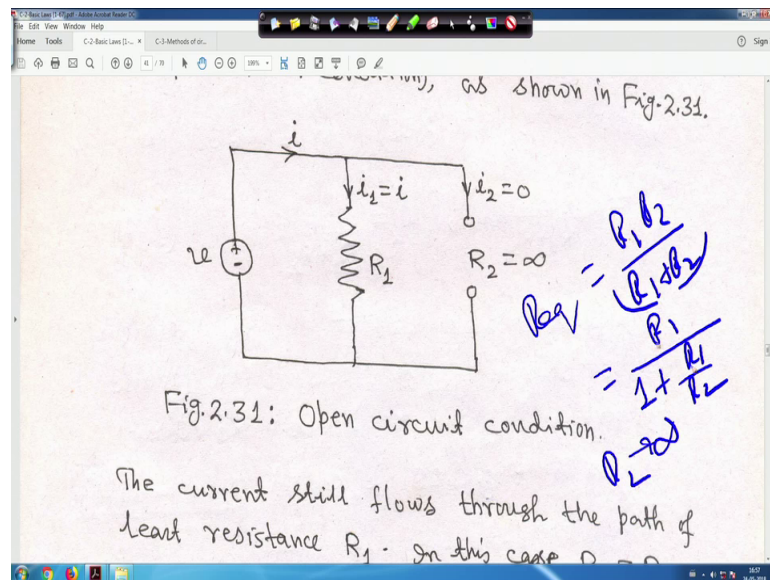 C-2-Basic Laws [1-67].pdf - Adobe Acrobat Reader DC
File Edit View Window Help
Home Tools C-2-Basic Laws [1-... × C-3-Methods of cir... Sign
41 / 78
as shown in Fig.2.31.
i
i₁=i i₂=0
v + - R₁ R₂=∞
Req = R₁R₂ / R₁+R₂
= R₁ / 1+ R₁/R₂
R₂→∞
Fig.2.31: Open circuit condition.
The current still flows through the path of
least resistance R₁. In this case
16:57